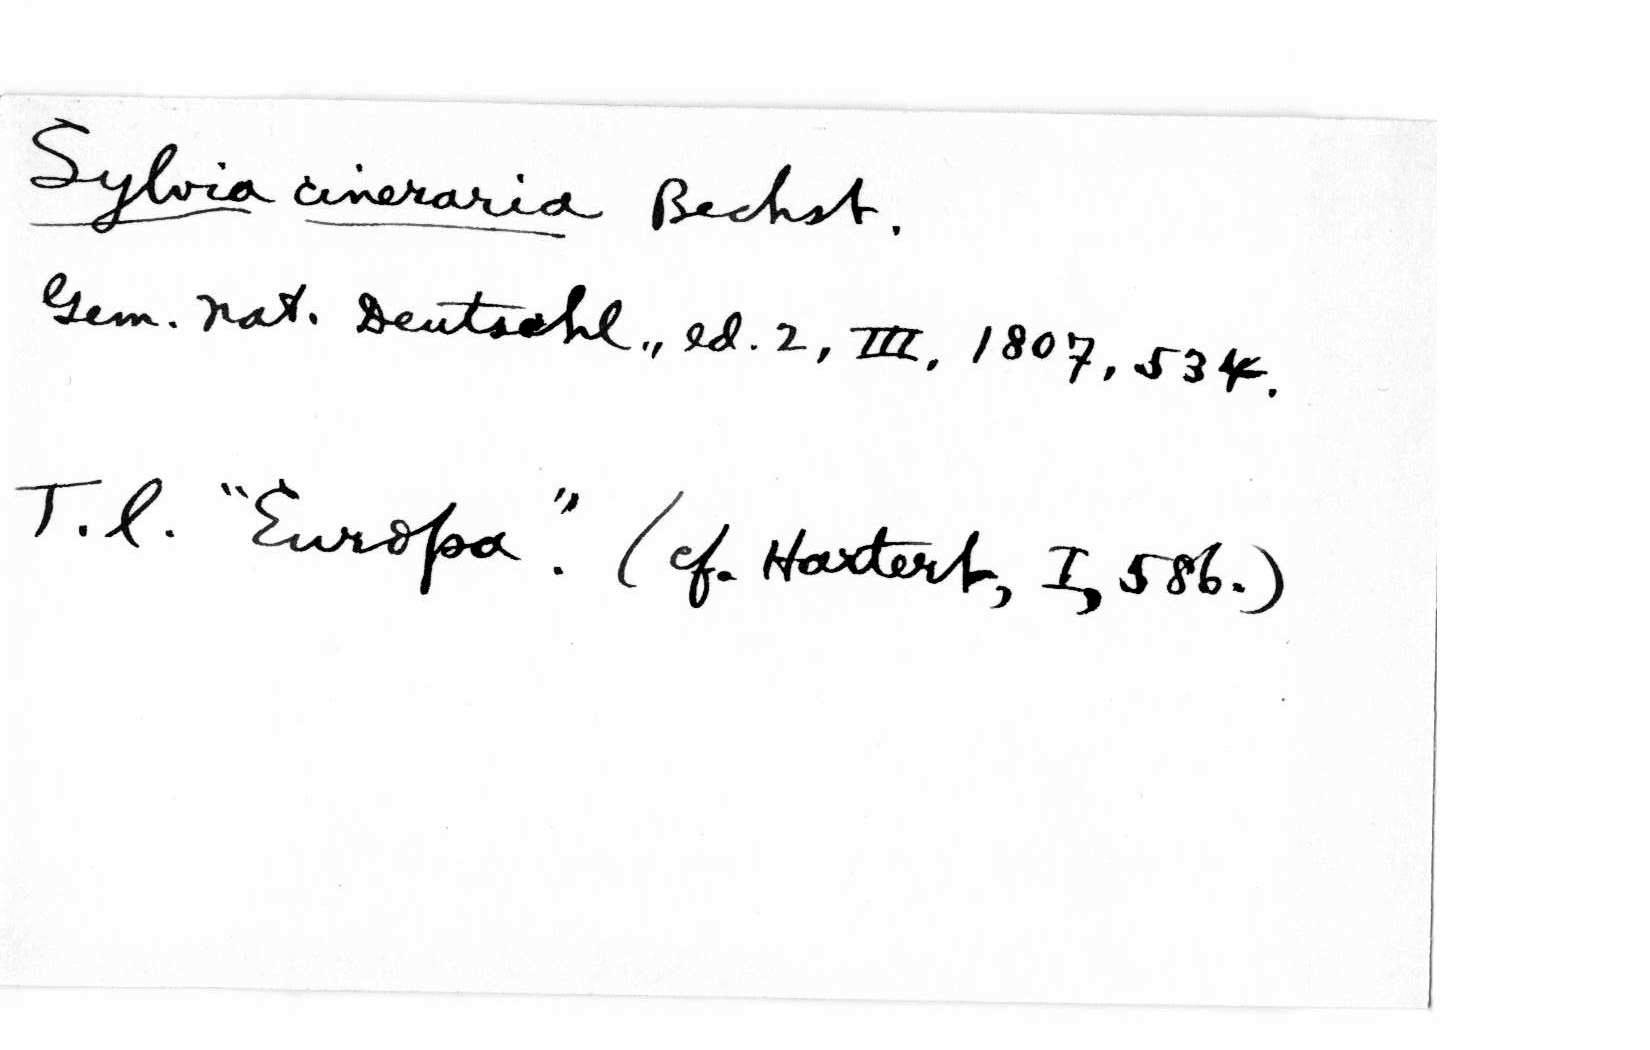 Sylvia cineraria Bechst.
Gem. Nat. Deutschl., ed. 2, III, 1807, 534.
T. l. "Europa". (cf. Hartert, I, 586.)